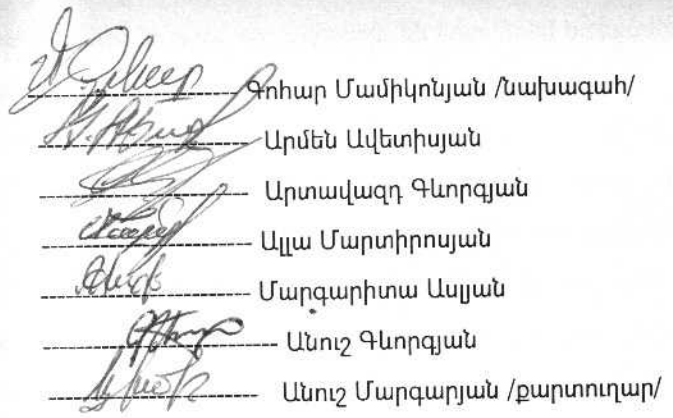 Գոհար Մամիկոնյան /նախագահ/
Արմեն Ավետիսյան
Արտավազդ Գևորգյան
Ալլա Մարտիրոսյան
Մարգարիտա Ասլյան
Անուշ Գևորգյան
Անուշ Մարգարյան /քարտուղար/